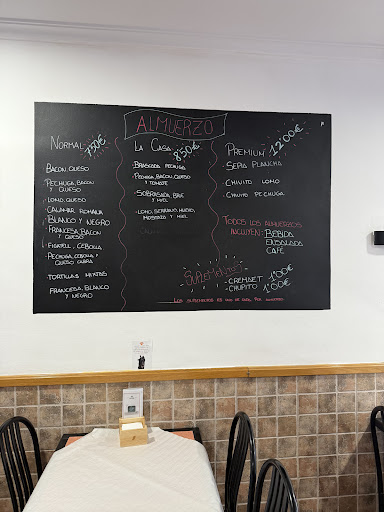 ALMUERZO
NORMAL 7'50€
BACON, QUESO
PECHUGA, BACON
Y QUESO
LOMO, QUESO
CALAMAR ROMANA
BLANCO Y NEGRO
FRANCESA, BACON
Y QUESO
FIGATELL, CEBOLLA
PECHUGA, CEBOLLA Y
QUESO CABRA
TORTILLAS MIXTAS
FRANCESA, BLANCO
Y NEGRO
LA CASA 8'50€
BRASCADA PECHUGA
PECHUGA, BACON, QUESO
Y TOMATE
SOBRASADA, BRIE
Y MIEL
LOMO, SERRANO, HUEVO,
MOSTAZA Y MIEL
PREMIUM 12'00€
SEPIA PLANCHA
CHIVITO LOMO
CHIVITO PECHUGA
TODOS LOS ALMUERZOS
INCLUYEN: BEBIDA
ENSALADA
CAFÉ
SUPLEMENTOS
-CREMAET 1'00€
-CHUPITO 1'00€